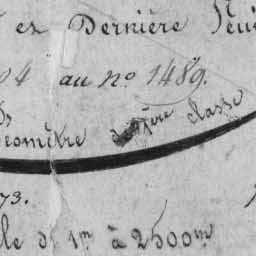 et Dernière Feui
04 au no. 1489.
Géomètre de 2ère classe
73.
lle d 1m à 2500m